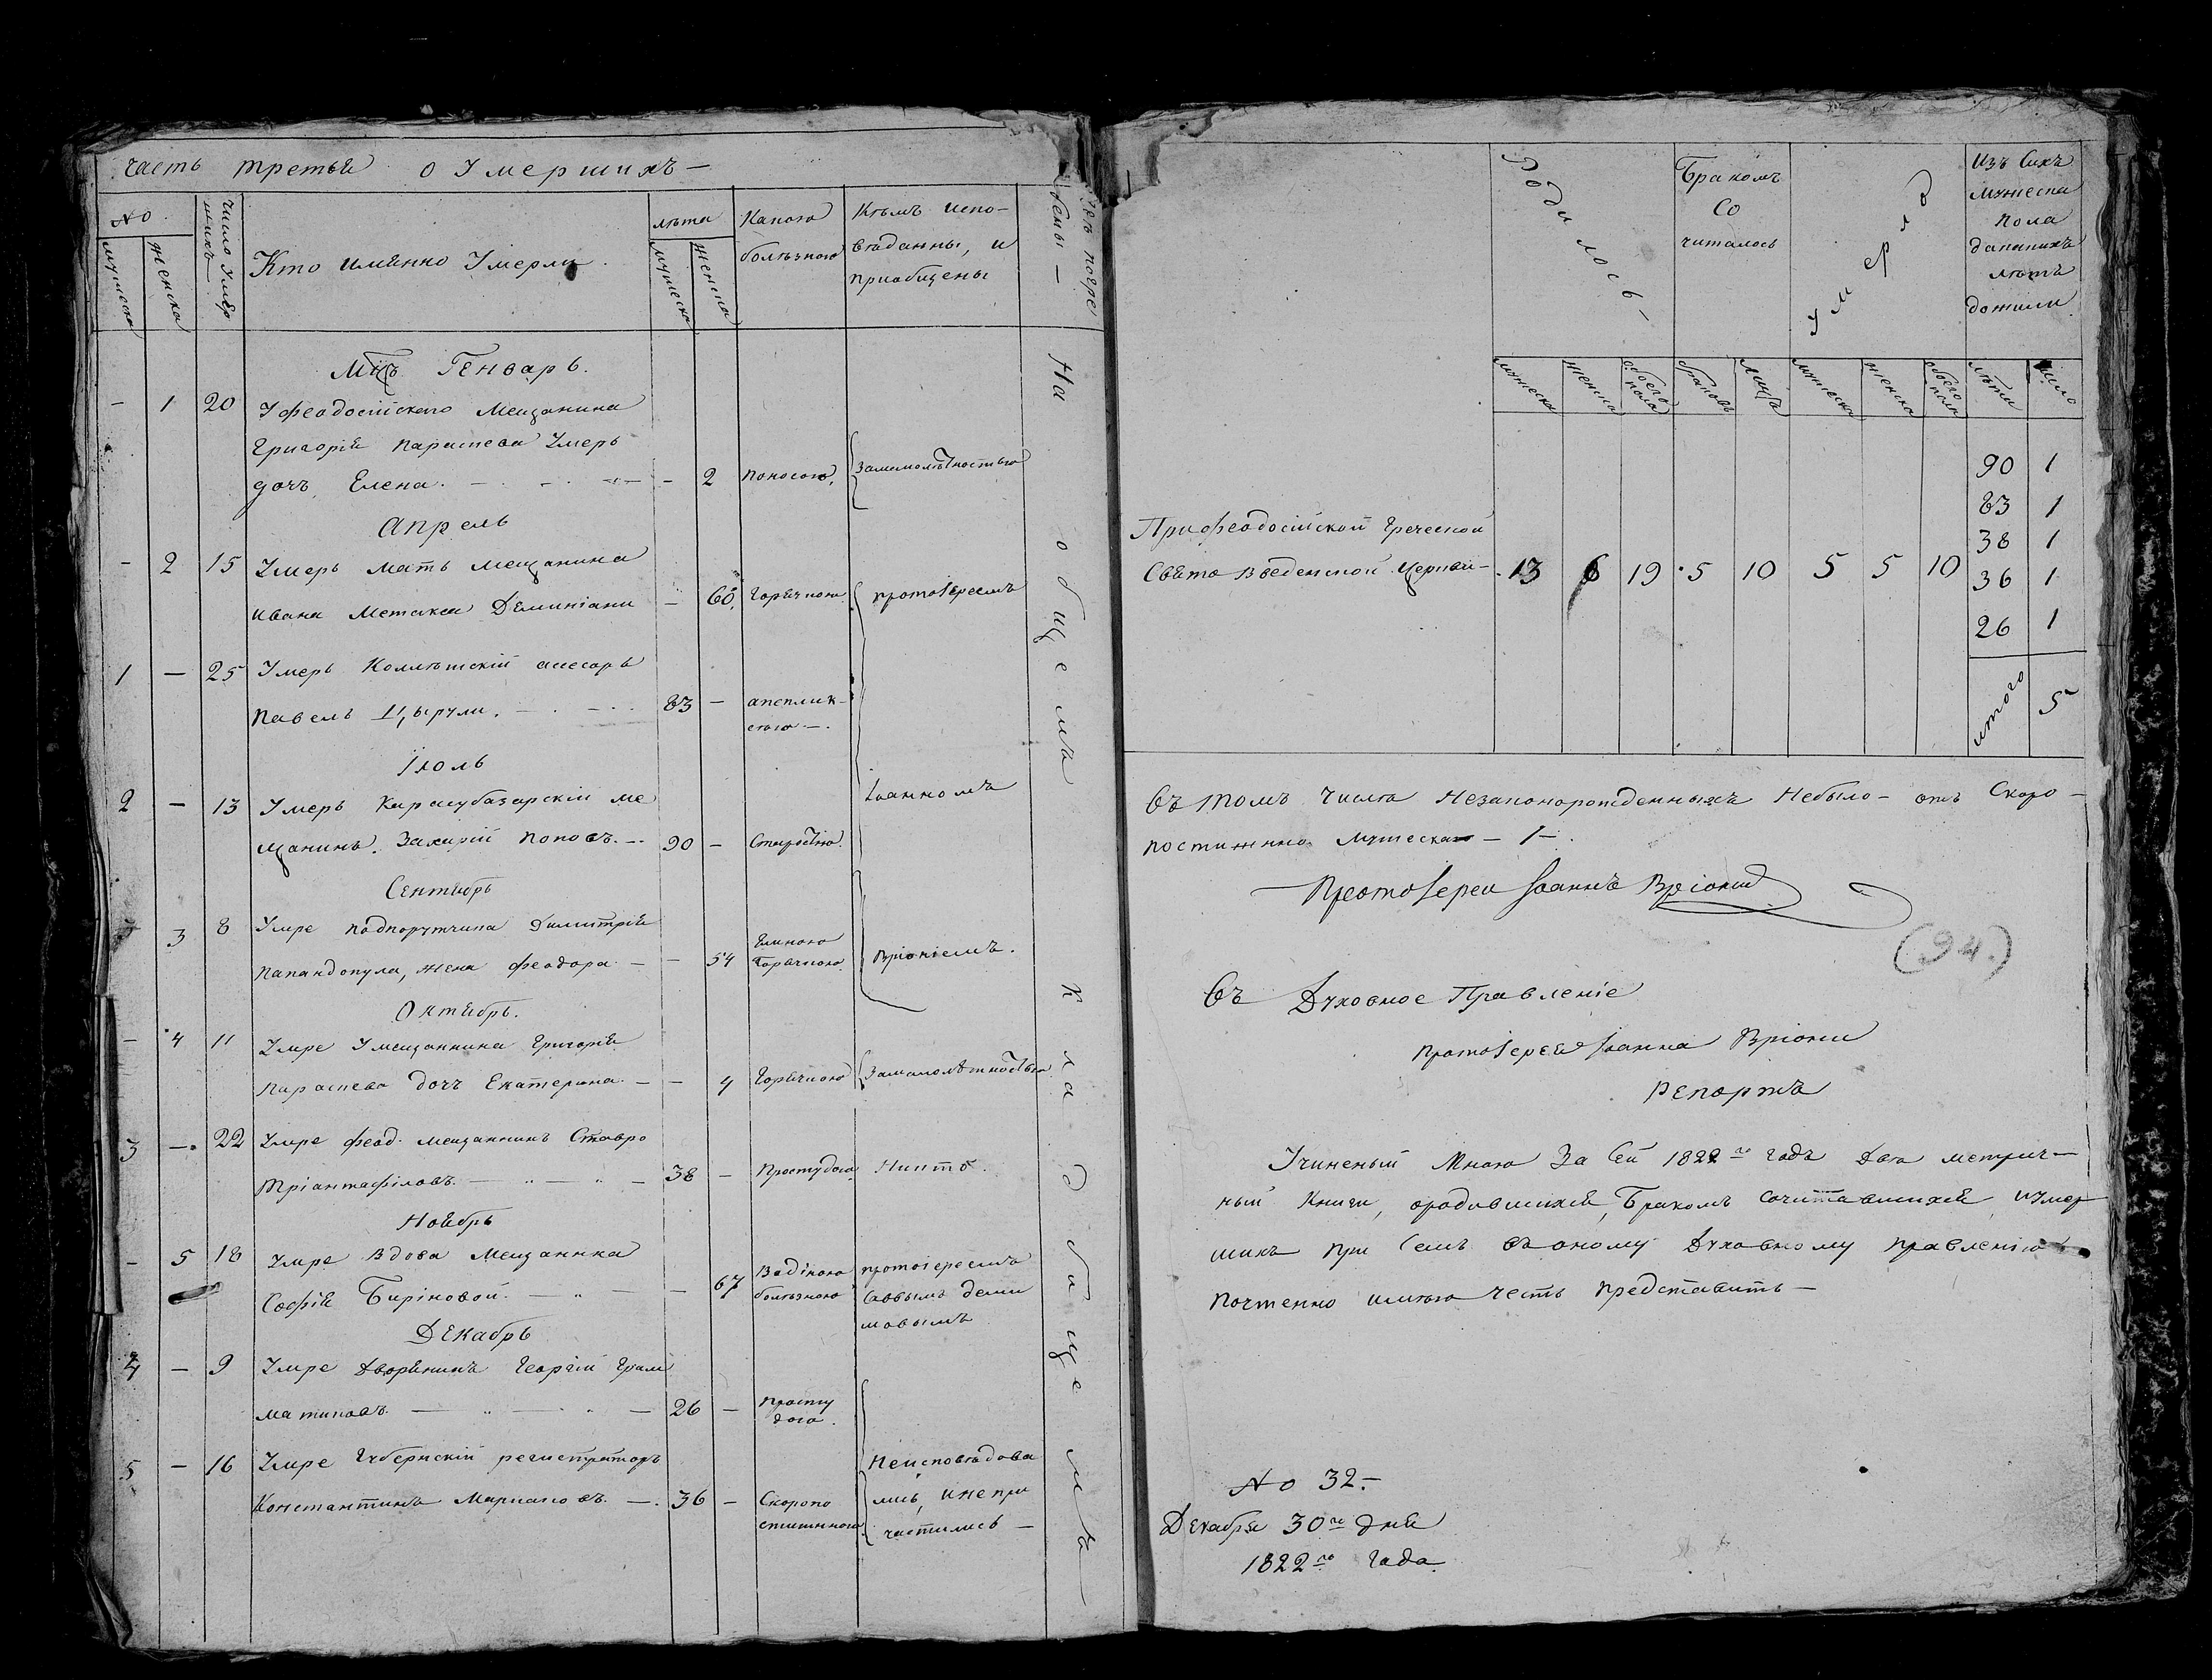 часть третья о Умершихъ —
№
мужеска
женска
число умер
шихъ
Кто имянно Умерли.
лѣта
мужеска
женска
Какою
болѣзною
Кѣмъ испо-
вѣданны, и
приобщены
погре
бены —
Мцъ Генварь.
- 1 20 У феодосійскаго Мещанина
Григорія Параскева Умерь
дочь Елена. — - 2 поносою, Замалолѣтностью
Апрель
- 2 15 Умерь мать мещанина
Ивана Метакса Деминіани — 60. Горячкою протоіереемъ
1 — 25 Умерь Коллѣшскій ассесоръ
Павелъ Цырули. — 83 — апеплек-
сіею —.
Іюль
2 — 13 Умерь Карасубазарскій ме
щанинъ. Захарій Поповъ. — 90 — Старостію. Іоанномъ
Сентябрь
- 3 8 Умре подпорутчика Димитрія
Папандопула, жена феодора — — 54 Горячкою. Вріоніемъ.
Октябрь.
- 4 11 Умре У мещанина Григорія
Параскева дочь Екатерина — — 4 Горячкою Замалолѣтностью
3 — 22 Умре феод. мещанинъ Ставро
Тріантафіловъ. — 38 — Простудою Никто.
Ноябрь
- 5 18 Умре Вдова Мещанка
Софія Биріновой. — — 67 Водяною протоіереемъ
болѣзною Саввымъ деми
мовымъ
Декабрь
4 — 9 Умре Дворянинъ Георгій Грам
матиковъ. — 26 — просту
дою.
5 — 16 Умре Губернскій регистраторъ
Константинъ Мариановъ. — 36 — Скоропо
стижною
Неисповѣдова
лись, и непри
частились —
На общемъ кладбищемъ —
Родилось —
Бракомъ
Со
читалось
Умерло
Изъ сихъ
мужеска
пола
дакакихъ
лѣтъ
дожили
мужеска
женска
обоего
пола
браковъ
лицъ
мужеска
женска
обоего
пола
лѣта
число
При феодосійской Греческой
Свято Введенской Церкви — 13 6 19 5 10 5 5 10
90 1
83 1
38 1
36 1
26 1
итого 5
Въ томъ числѣ Незаконорожденныхъ Небыло — отъ Скоро-
постижно Мужеска — 1 —.
Протоіерей Іоаннъ Вріони
(94.)
Въ Духовное Правленіе
Протоіерея Іоанна Вріони
Репортъ
Учиненый Мною За Сей 1822го Годъ Два метрич-
ныи Книги, ородившихся, Бракомъ Сочитавшихся, и умер
шихъ при Семъ въ оному Духовному правленію
почтенно имѣю честь представить —
№ 32.—
Декабря 30го дня
1822го Года.